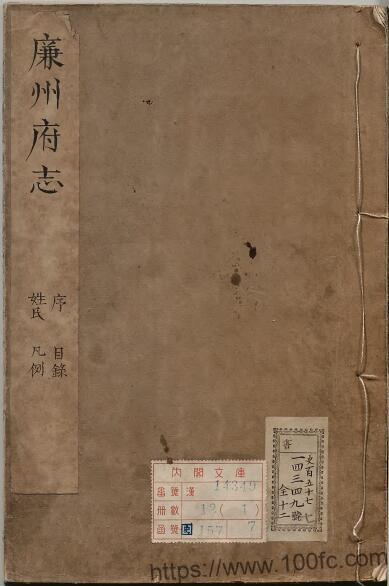 廉州府志
序 目錄
姓氏 凡例
內閣文庫
番號 漢 14349
冊數 12( 1 )
函號 157 7
書
史百五十七 七
一四三四九號
全十二
https://www.100fc.com